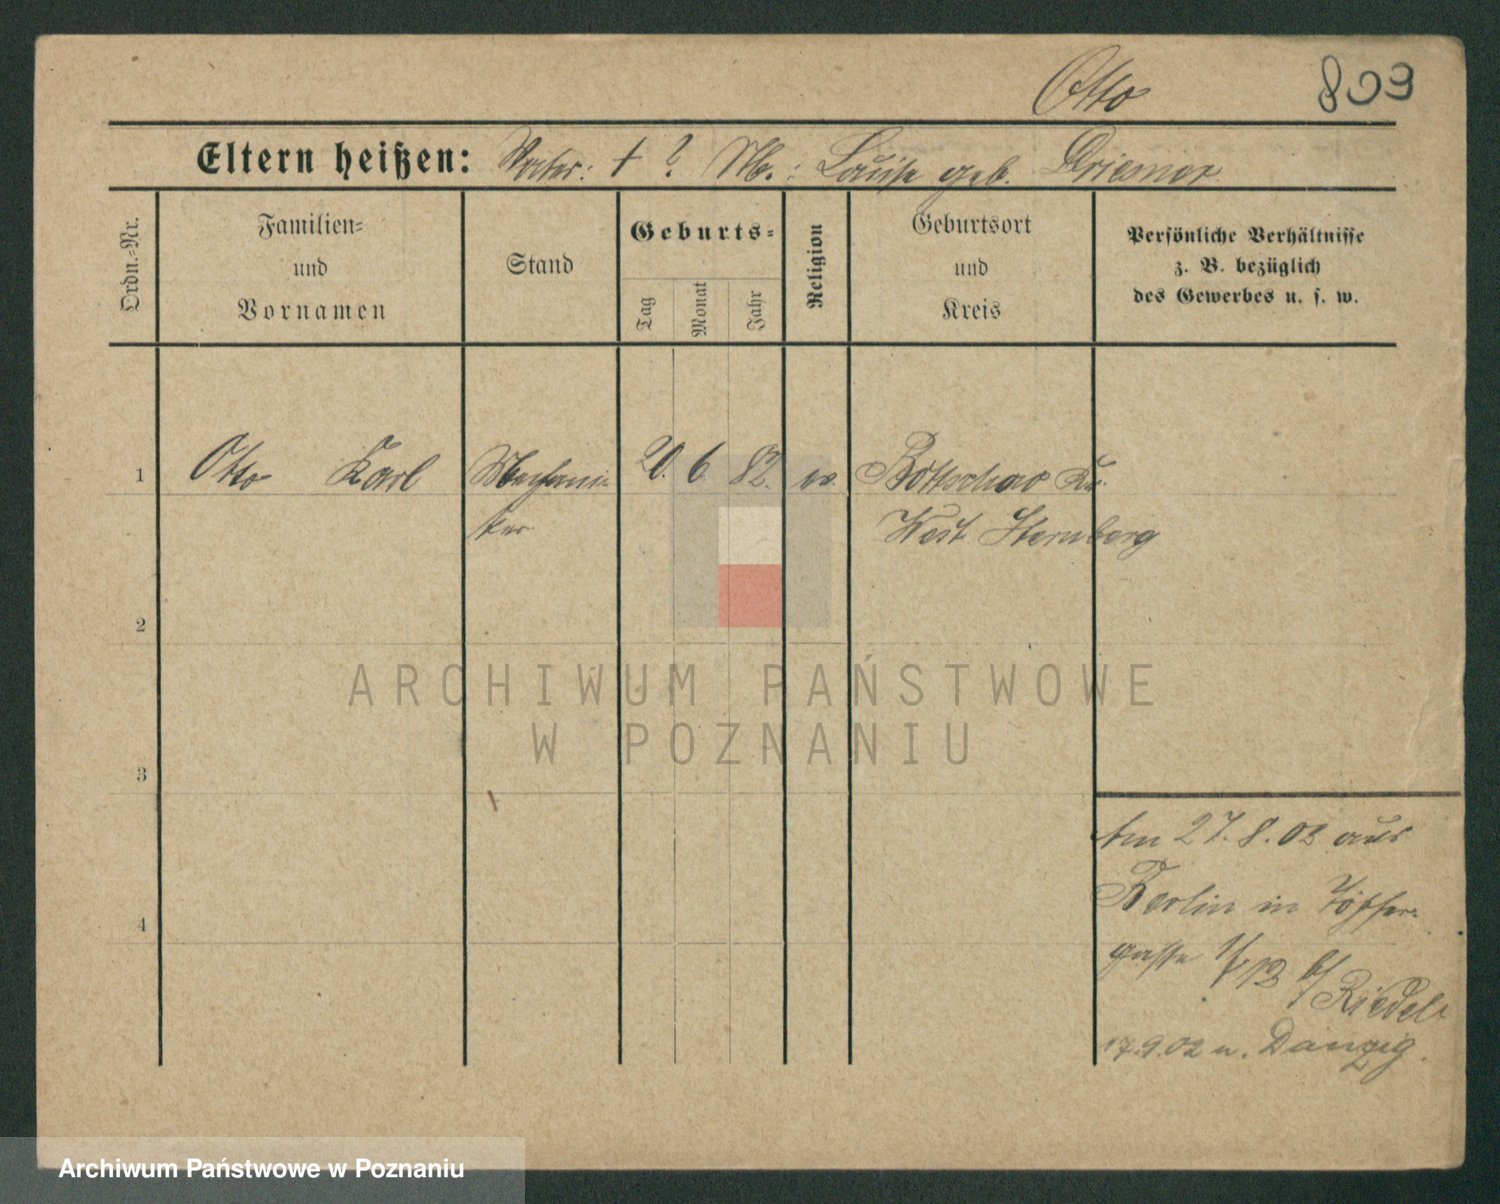 Otto 803
Eltern heißen: Vater: † ? M.: Louise geb. Driemer
Ordn.-Nr.
Familien-
und
Vornamen
Stand
Geburts-
Tag
Monat
Jahr
Religion
Geburtsort
und
Kreis
Persönliche Verhältnisse
z. B. bezüglich
des Gewerbes u. s. w.
1 Otto Karl Mechani- 20. 6. 82. ev. Kr.
ker West Sternberg
2
3
4
Am 27.8.02 aus
Berlin in Töpfer-
gasse 12 b/ Riedel
17.9.02 n. Danzig.
ARCHIWUM PAŃSTWOWE
W POZNANIU
Archiwum Państwowe w Poznaniu